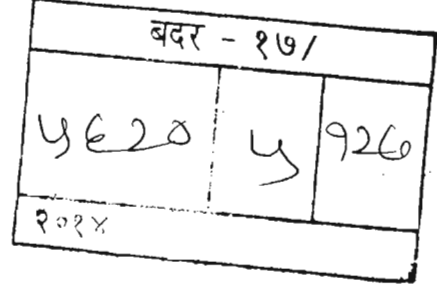 बदर - १७/
५६२० ५ १२७
२०१४